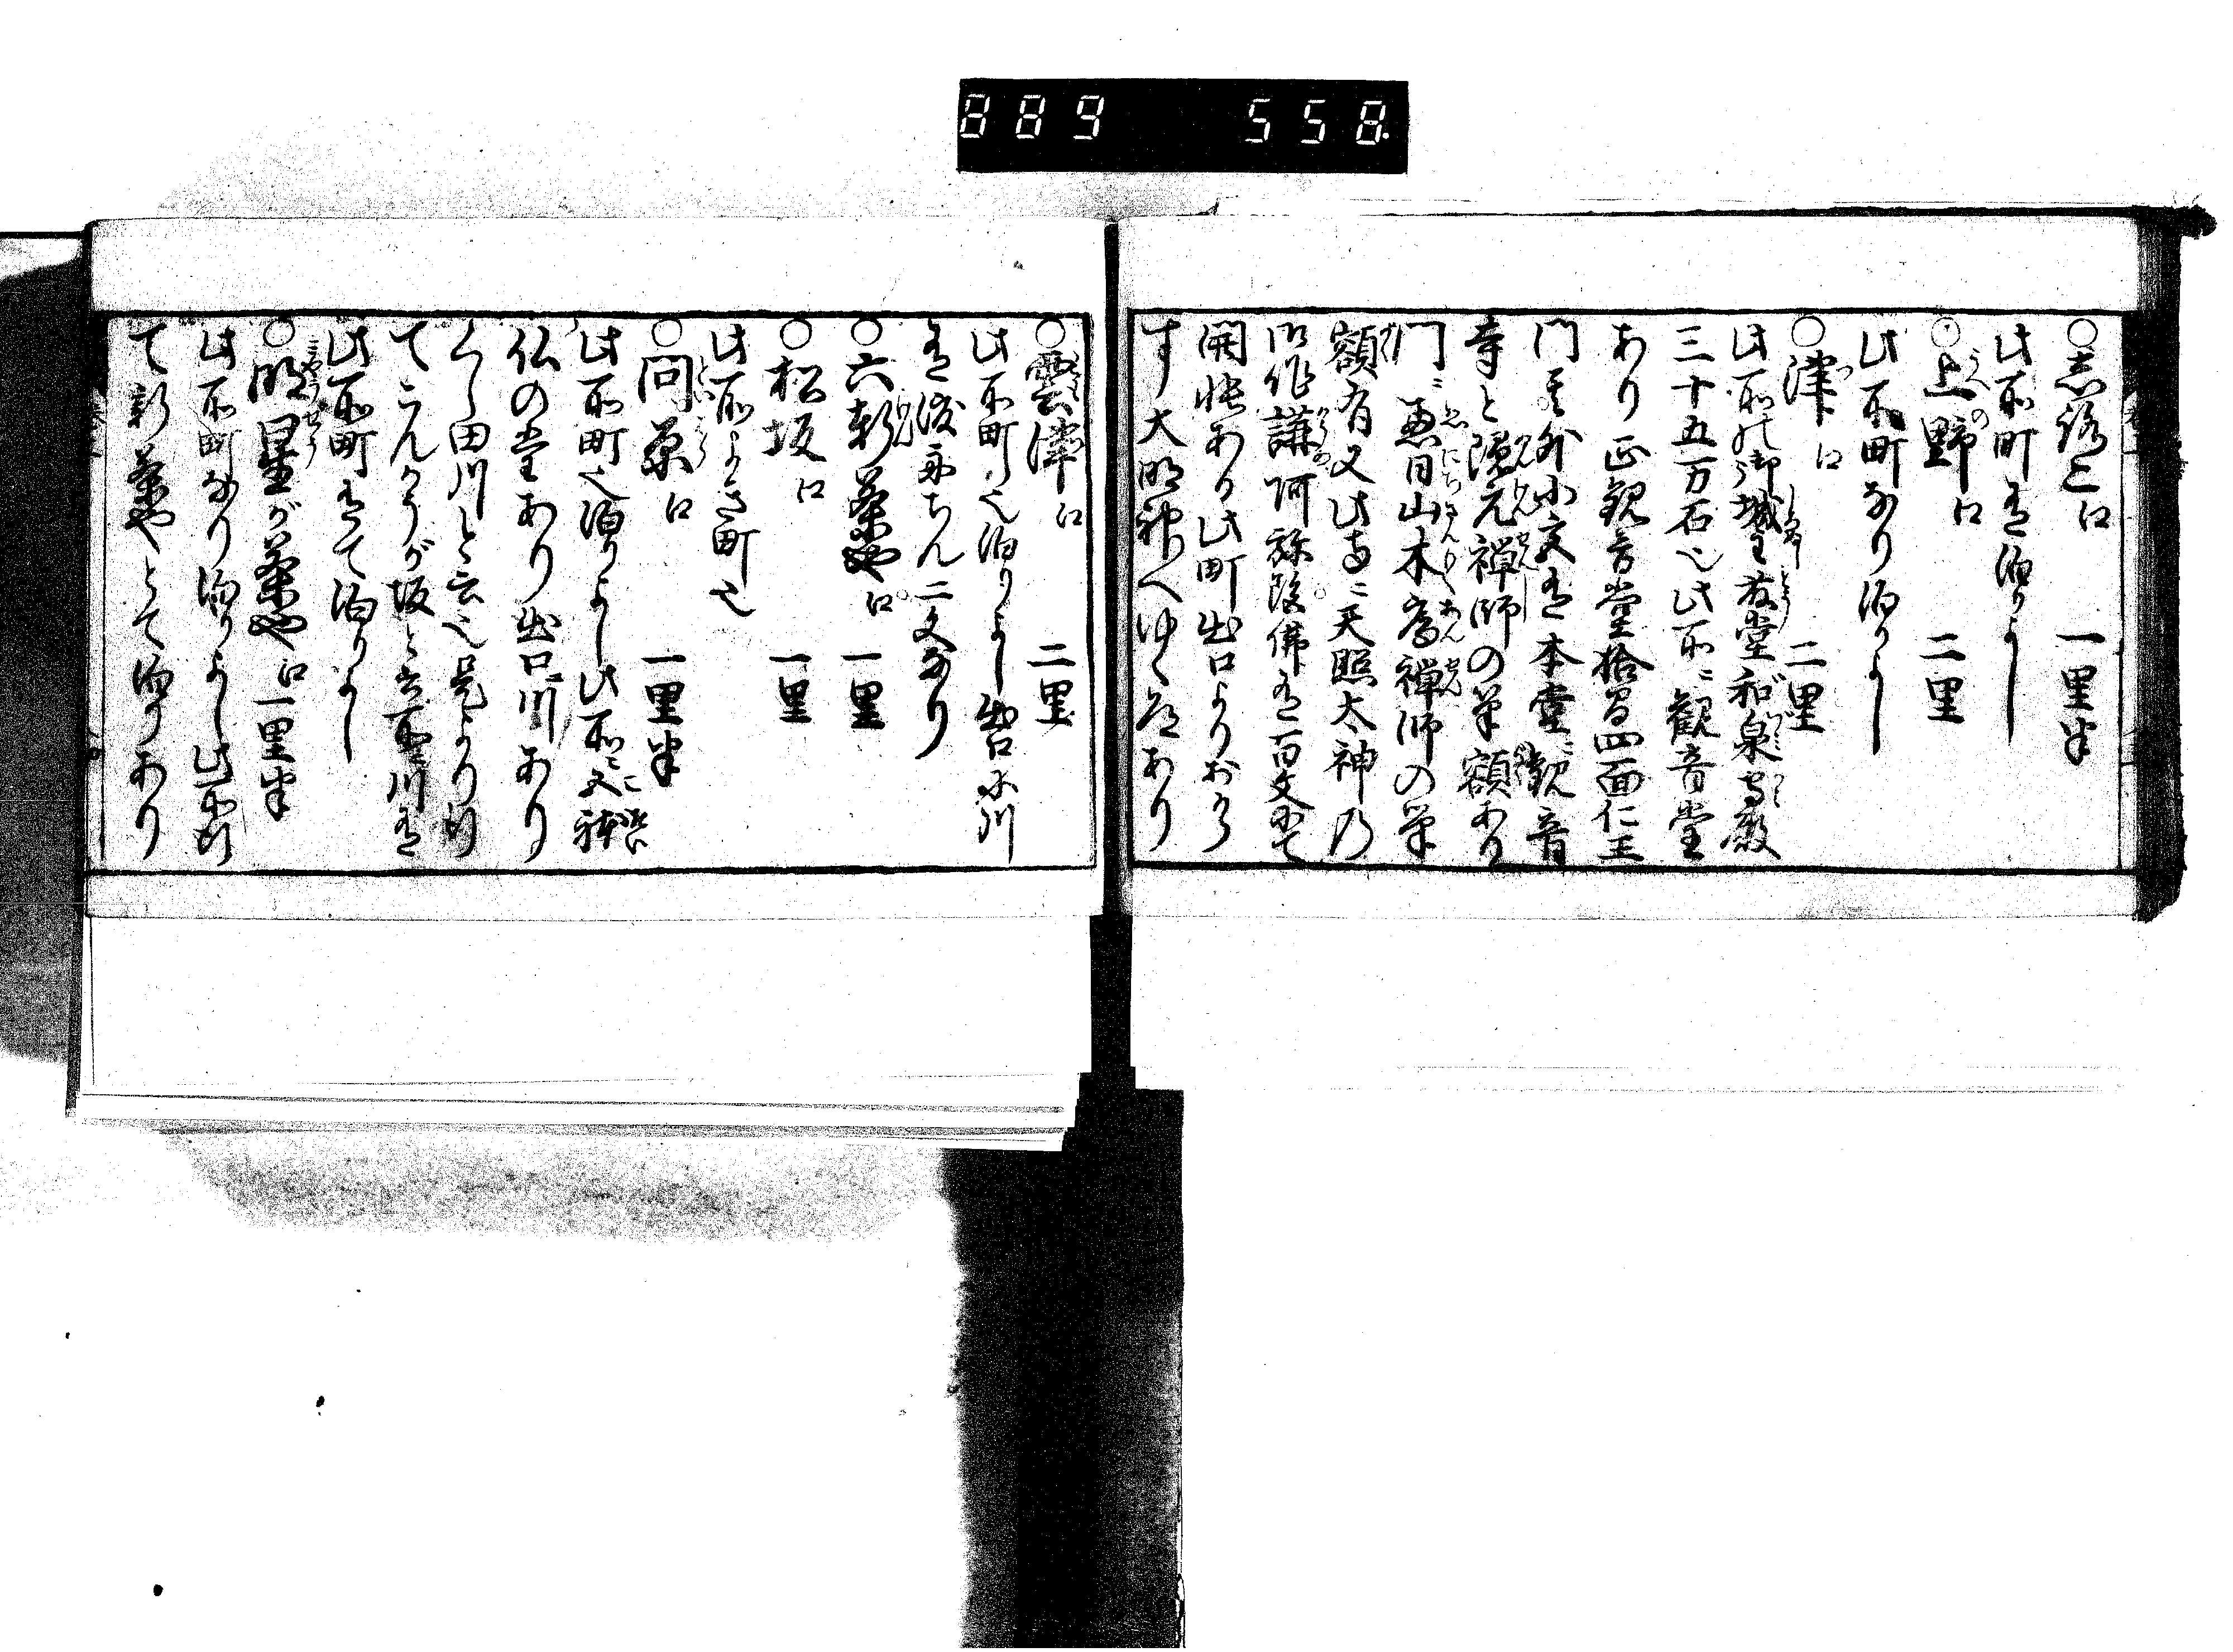 889 558.
○志ろこ 口 一里半
此所町有泊りよし
○上野 口 二里
此所町なり泊りよし
○津 口 二里
此所の御城主藤堂和泉守殿
三十五万石也此所ニ観音堂
あり正観音堂拾間四面仁王
門其外小文有本堂ニ観音
寺と隠元禅師の筆額あり
門ニ恵日山木庵禅師の筆
額有又此寺ニ天照太神乃
御作 阿弥陀佛有百文にて
開帳あり此町出口よりおから
す大明神へゆく道あり
○雲津 口 二里
此所町也泊りよし出口に川
有渡舟ちん二文なり
○六軒茶や 口 一里
○松坂 口 一里
此所よき町也
○ 口 一里半
此所町也泊りよし此所ニ又
仏の堂あり出口ニ川あり
くし田川と云也是より
てこんかうが坂と云所ニ川有
此所町有て泊りよし
○明星が茶や 口 一里半
此所町なり泊りよし此
て新茶やとて泊りあり